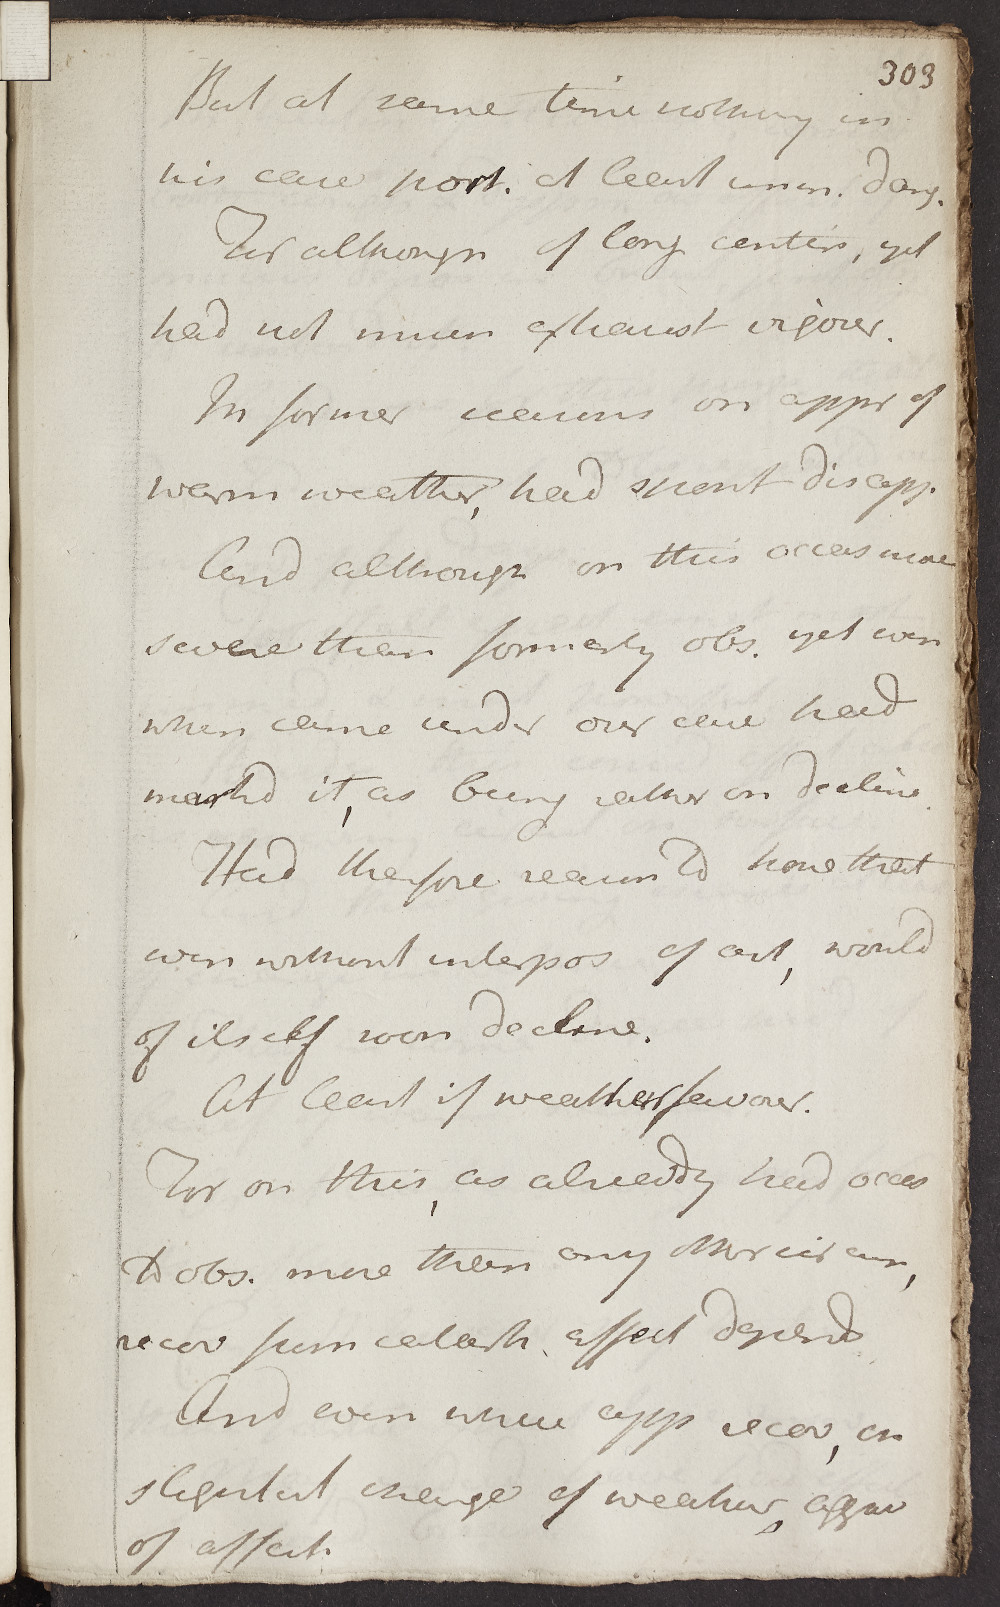 303
But at same time nothing in
his case port. at least imm. dang.
For although of long contin, yet
had not much exhaust vigour.
In former seasons on appr of
warm weather, had spont disapp.
And although on this occas more
severe than formerly obs. yet even
when came under our care had
markd it, as being rather on decline.
Had therefore reason to hope that
even without interpos of art, would
of itself soon decline.
At least if weather favour.
For on this, as already had occas
to obs. more than any other circum,
recov from catarrh. affect depends
And even where app recov, on
slightest change of weather, aggrav
of affect.